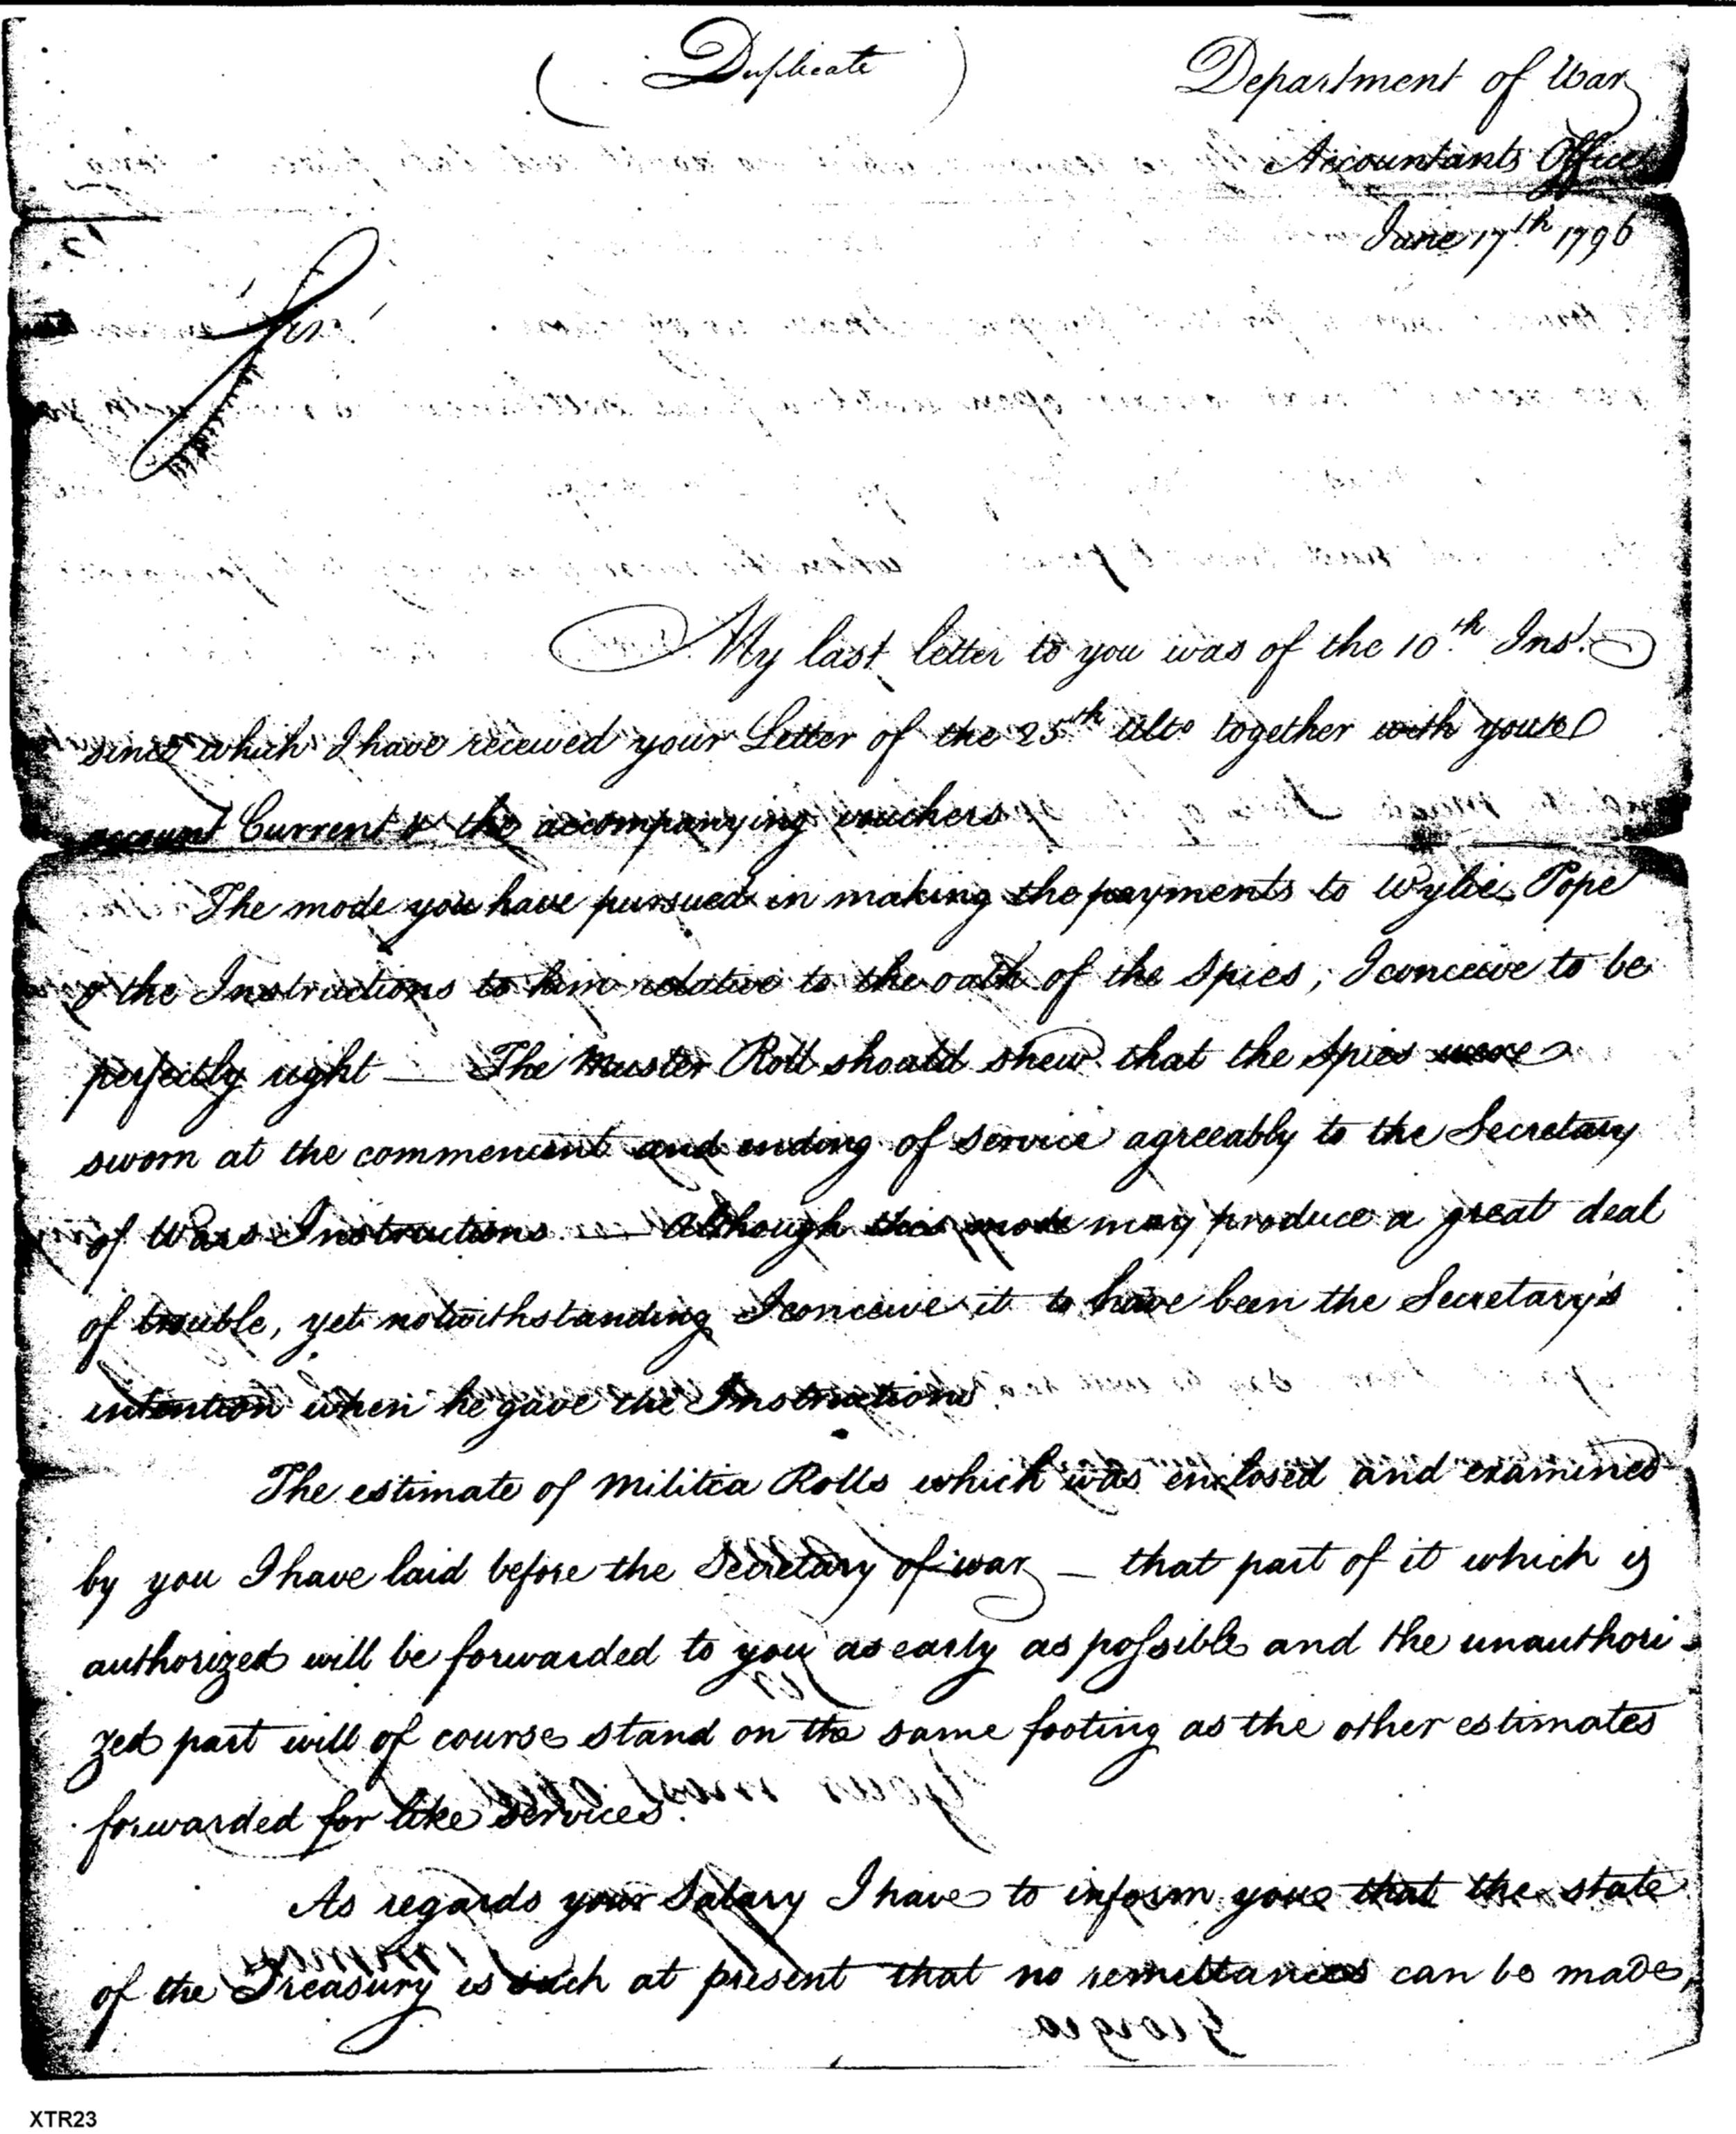 (Duplicate)
Department of War
Accountants Office
June 17th 1796
Sir
My last letter to you was of the 10th Inst.
since which I have received your Letter of the 25th Ulto together with your
account Current & the accompanying vouchers
The mode you have pursued in making the payments to Wylie Pope
& the Instructions to him relative to the oath of the Spies, I conceive to be
perfectly right — The Muster Roll should shew that the Spies were
sworn at the commencent and ending of service agreeably to the Secretary
of Wars Instructions — Although this mode may produce a great deal
of trouble, yet notwithstanding I conceive it to have been the Secretary's
intention when he gave the Instructions
The estimate of Militia Rolls which was enclosed and examined
by you I have laid before the Secretary of war — that part of it which is
authorized will be forwarded to you as early as possible and the unauthori-
zed part will of course stand on the same footing as the other estimates
forwarded for like Services.
As regards your Salary I have to inform you that the state
of the Treasury is such at present that no remittances can be made,
XTR23